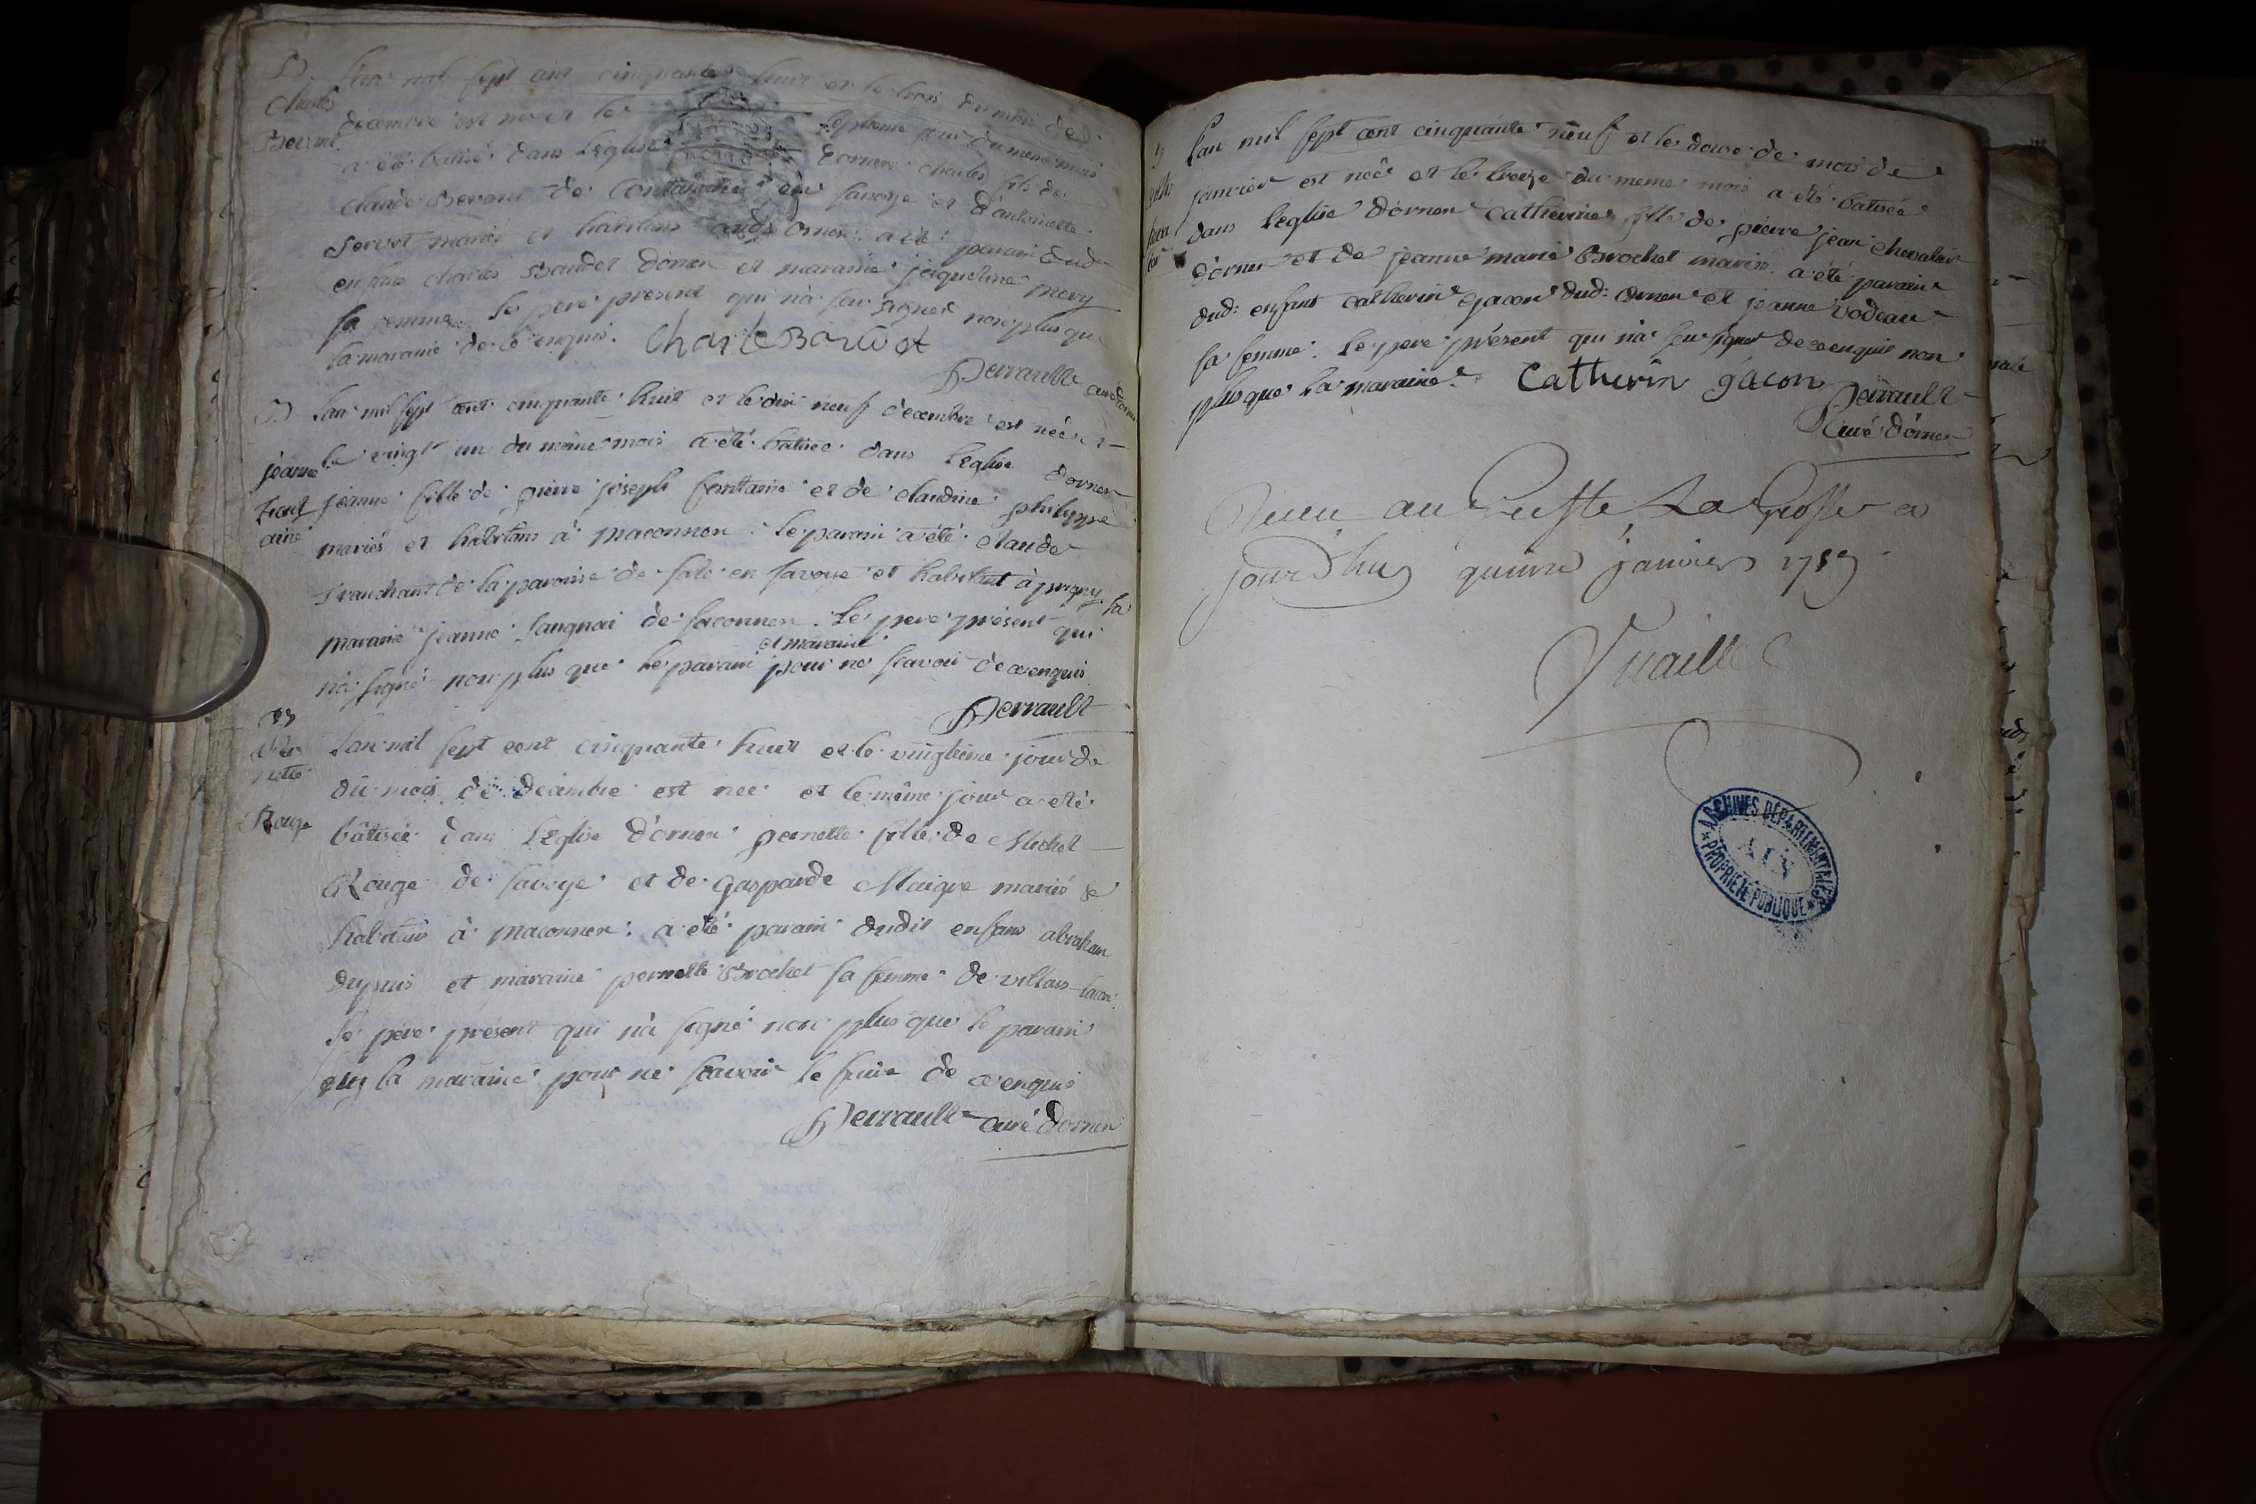 B
charles
Beroud
L'an mil sept cent cinquante huit et le trois du mois de
décembre est né et le septieme jour du meme mois
a été batisé dans l'eglise d'ornex charles fils de
claude Beroud de en savoye et d'antoinette
servet mariés et habitans aud: ornex. a été parain dud:
enfant charles Baudet d'ornex et maraine jaqueline mery
sa femme le pere present qui n'a sçu signer non plus que
la maraine de ce enquis. Charle Baudet
Perrault curé d'ornex
B
jeanne
font
aine
L'an mil sept cent cinquante huit et le dix neuf décembre est née et
le vingt un du même mois a été batisée dans l'eglise d'ornex
jeanne fille de pierre joseph fontaine et de claudine philippe
mariés et habitans à maconnex. le parain a été claude
tranchant de la paroisse de sale en savoye et habitant à pregny la
maraine jeanne de saconnex. le pere present qui
n'a signé non plus que le parain et maraine pour ne scavoir de ce enquis
Perrault
B
per
nette
Rouge
L'an mil sept cent cinquante huit et le vingtieme jour de
du mois de decembre est nee et le même jour a été
bâtisée dans l'Eglise d'ornex pernette fille de Michel
Rouge de savoye et de gasparde Maigre mariés &
habitans à maconnex: a été parain dudit enfans abraham
dupuis et maraine pernette Brochet sa femme de villars-tacon
le pere présent qui n'a signé non plus que le parain
et la maraine pour ne scavoir le faire de ce enquis
Perrault curé d'ornex
L'an mil sept cent cinquante neuf et le douze de mois de
janvier est née et le treize du meme mois a été batisée
dans l'eglise d'ornex catherine fille de pierre jean chevalier
d'ornex et de jeanne marie Brochet mariés. a été parain
dud: enfant catherin gacon dud: ornex et jeanne vodeau
sa femme. le pere présent qui n'a sçu signer de ce enquis non
plus que la maraine. Catherin gacon
Perrault
Curé d'ornex
au Greffe La Grosse ce
jourd'huy quinze janvier 1759
Vuaille
ARCHIVES DÉPARTEMENTALES
AIN
PROPRIÉTÉ PUBLIQUE